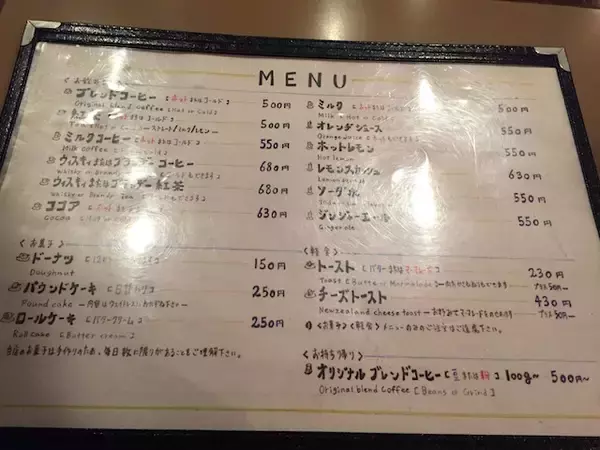 MENU
ブレンドコーヒー [ホットまたはコールド] 500円
Original blend coffee [Hot or Cold]
紅茶 500円
ミルクコーヒー [ホットまたはコールド] 550円
Milk coffee
ウィスキーまたはブランデーコーヒー 680円
Whisky or Brandy
ウィスキーまたはブランデー紅茶 680円
Whisky or Brandy Tea
ココア [ホットまたはコールド] 630円
Cocoa
<お菓子>
ドーナツ 150円
Doughnut
パウンドケーキ 250円
Pound cake
ロールケーキ [バタークリーム] 250円
Roll cake [Butter cream]
当店のお菓子は手作りのため、毎日数に限りがあることをご理解下さい。
ミルク [ホットまたはコールド] 500円
Milk [Hot or Cold]
オレンヂジュース 550円
Orange juice
ホットレモン 550円
Hot lemon
レモンスカッシュ 630円
Lemon
ソーダ水 550円
ジンジャーエール 550円
Ginger ale
<軽食>
トースト [バターまたはマーマレード] 230円
Toast [Butter or Marmalade]
チーズトースト 430円
Newzealand cheese toast
<お菓子><軽食>メニューのみのご注文はご遠慮下さい。
<お持ち帰り>
オリジナルブレンドコーヒー [豆または粉] 100g〜 500円〜
Original blend Coffee [Beans or Grind]